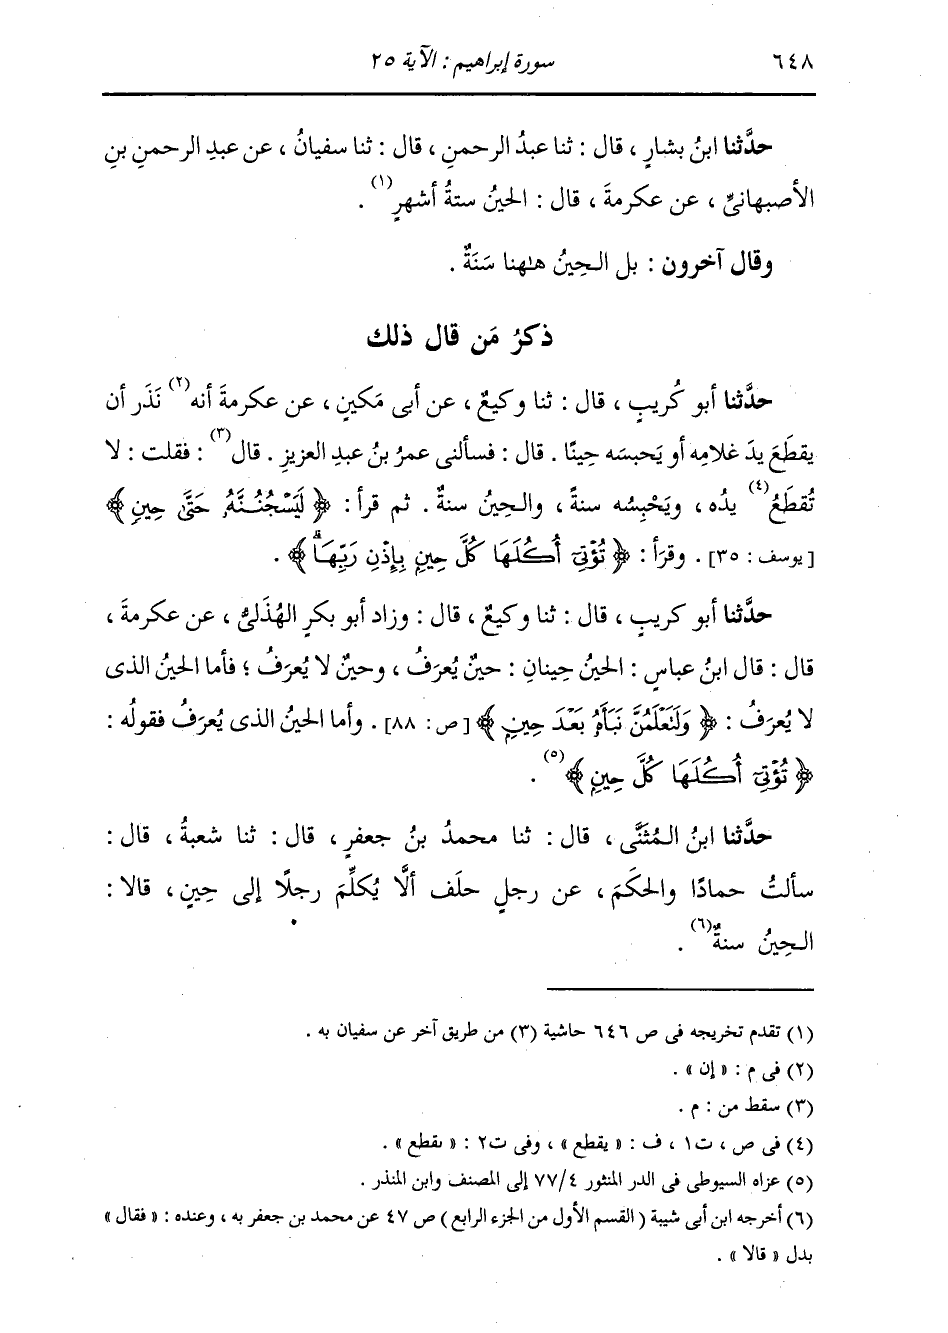 ٦٤٨ سورة إبراهيم : الآية ٢٥
حدَّثنا ابنُ بشارٍ ، قال : ثنا عبدُ الرحمنِ ، قال : ثنا سفيانُ ، عن عبدِ الرحمنِ بنِ
الأصبهانىِّ ، عن عكرمةَ ، قال : الحينُ ستةُ أشهرٍ(١) .
وقال آخرون : بل الحِينُ هٰهنا سَنَةٌ .
ذكرُ مَن قال ذلك
حدَّثنا أبو كُريبٍ ، قال : ثنا وكيعٌ ، عن أبى مَكينٍ ، عن عكرمةَ أنه(٢) نَذَر أن
يقطَعَ يدَ غلامِه أو يَحبسَه حِينًا . قال : فسألنى عمرُ بنُ عبدِ العزيزِ . قال(٣) : فقلت : لا
تُقطَعُ(٤) يدُه ، ويَحْبِسُه سنةً ، والحِينُ سنةٌ . ثم قرأ : ﴿ لَيَسْجُنُنَّهُۥ حَتَّىٰ حِينٍ ﴾
[يوسف : ٣٥] . وقرَأ : ﴿ تُؤْتِىٓ أُكُلَهَا كُلَّ حِينٍۭ بِإِذْنِ رَبِّهَاۗ ﴾ .
حدَّثنا أبو كريبٍ ، قال : ثنا وكيعٌ ، قال : وزاد أبو بكرٍ الهُذَلىُّ ، عن عكرمةَ ،
قال : قال ابنُ عباسٍ : الحينُ حِينانِ : حينٌ يُعرَفُ ، وحينٌ لا يُعرَفُ ؛ فأما الحينُ الذى
لا يُعرَفُ : ﴿ وَلَتَعْلَمُنَّ نَبَأَهُۥ بَعْدَ حِينٍۭ ﴾ [ص : ٨٨] . وأما الحينُ الذى يُعرَفُ فقولُه :
﴿ تُؤْتِىٓ أُكُلَهَا كُلَّ حِينٍۭ ﴾(٥) .
حدَّثنا ابنُ المُثَنَّى ، قال : ثنا محمدُ بنُ جعفرٍ ، قال : ثنا شعبةُ ، قال :
سألتُ حمادًا والحكَمَ ، عن رجلٍ حلَف ألَّا يُكلِّمَ رجلًا إلى حِينٍ ، قالا :
الحِينُ سنةٌ(٦) .
(١) تقدم تخريجه فى ص ٦٤٦ حاشية (٣) من طريق آخر عن سفيان به .
(٢) فى م : « إن » .
(٣) سقط من : م .
(٤) فى ص ، ت١ ، ف : « يقطع » ، وفى ت٢ : « ىقطع » .
(٥) عزاه السيوطى فى الدر المنثور ٧٧/٤ إلى المصنف وابن المنذر .
(٦) أخرجه ابن أبى شيبة ( القسم الأول من الجزء الرابع ) ص ٤٧ عن محمد بن جعفر به ، وعنده : « فقال »
بدل « قالا » .